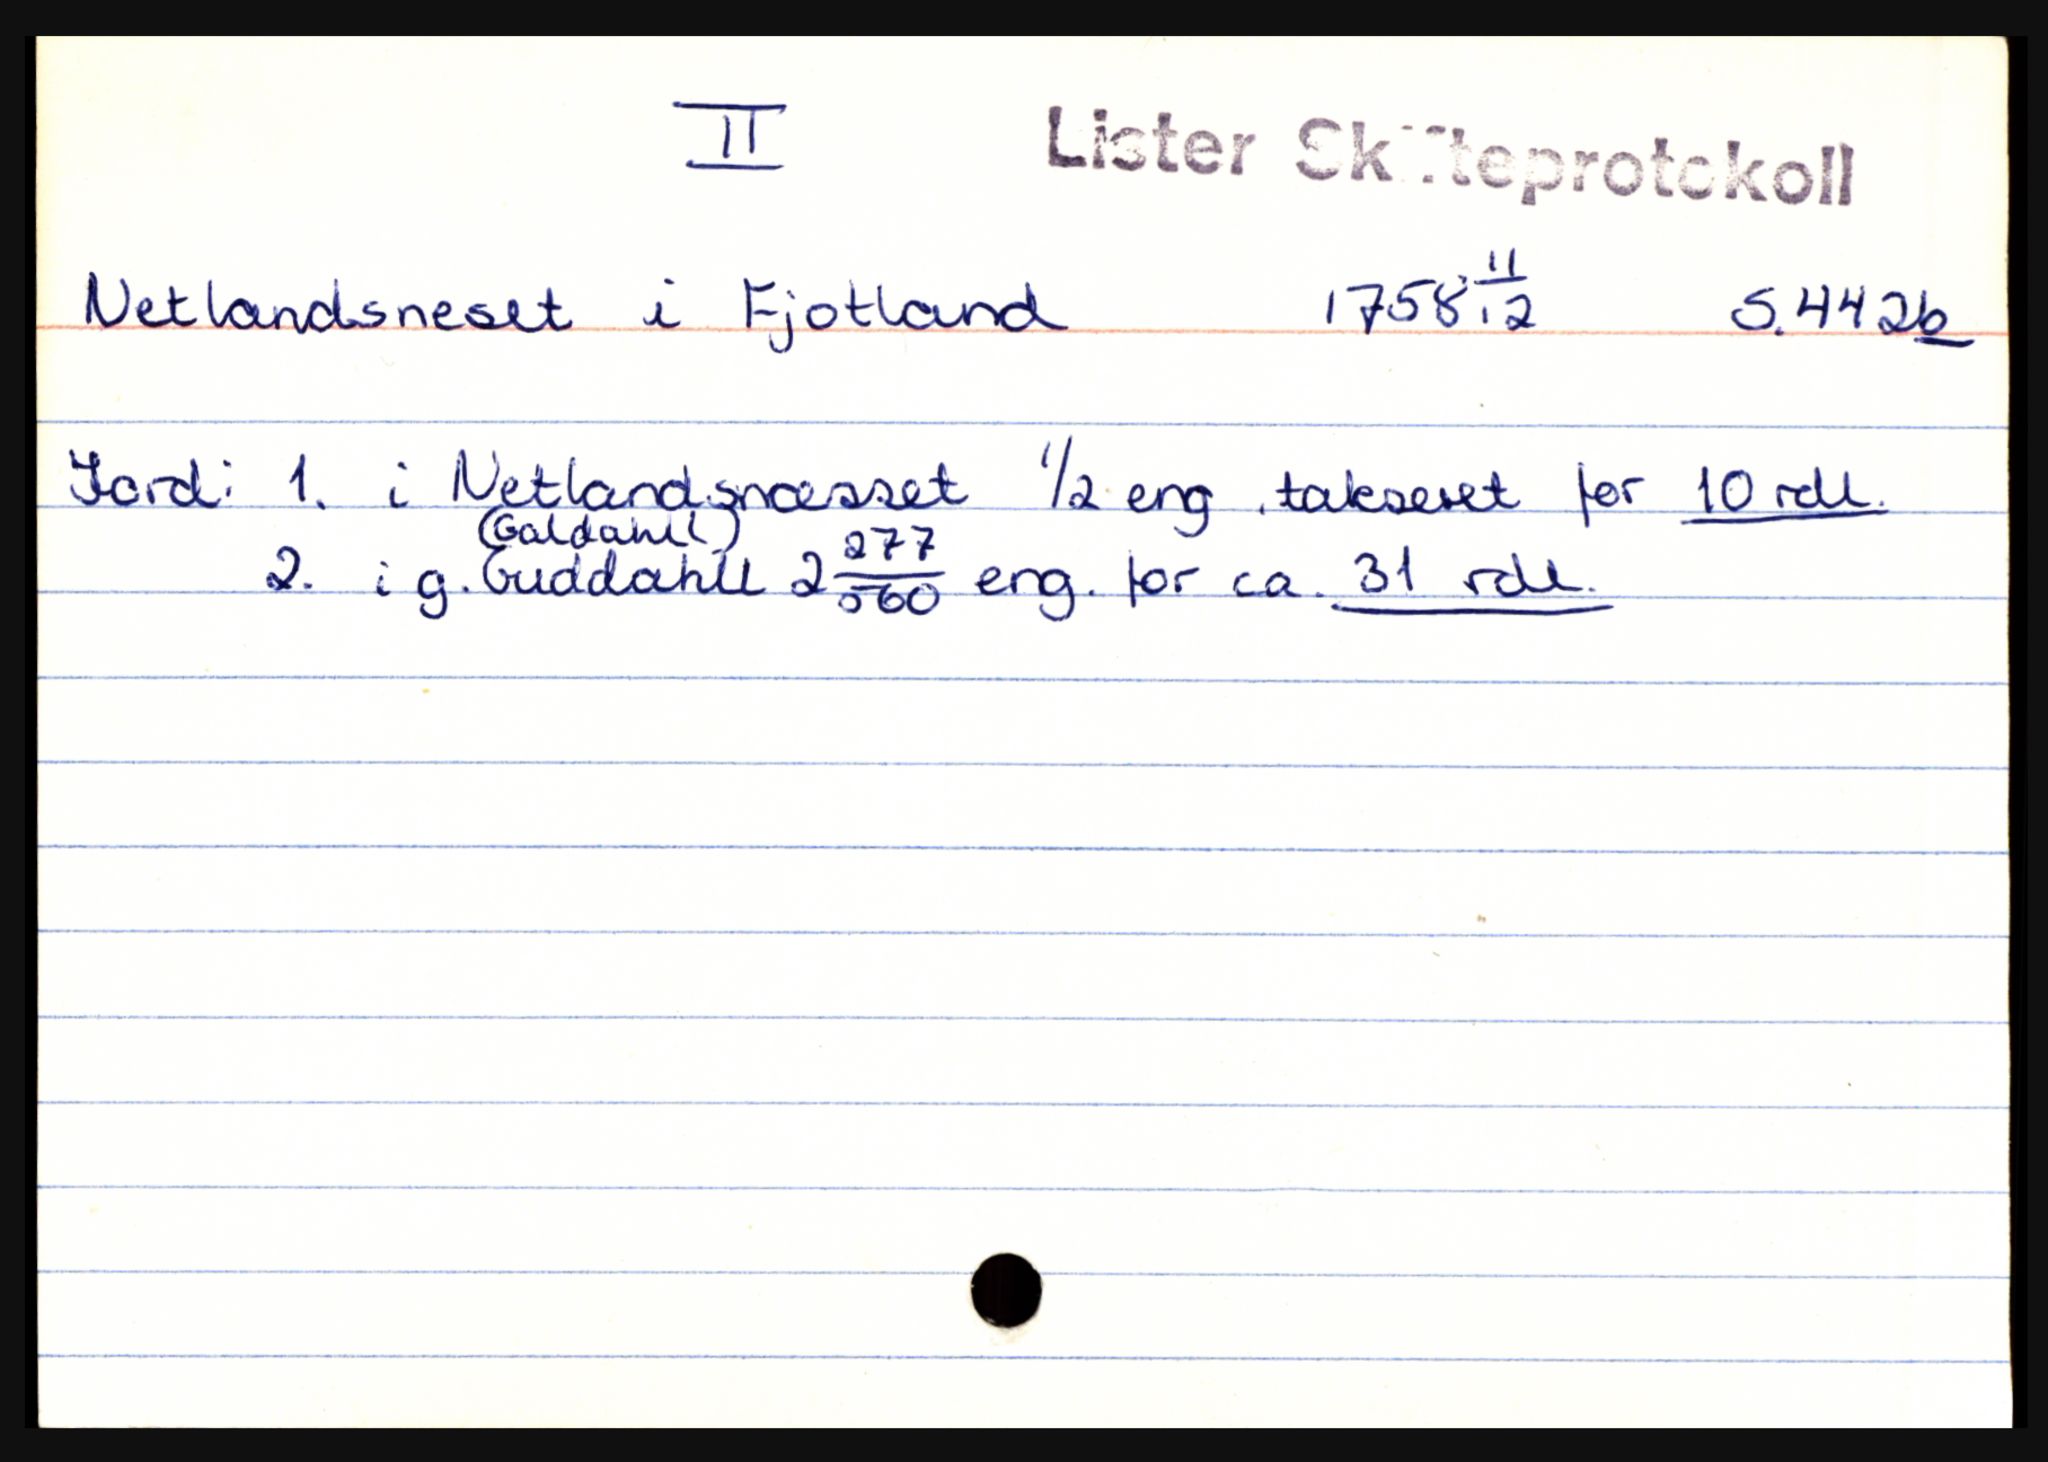 II Lister Skifteprotokoll
Netlandsneset i Fjotland 1758 11/12 S. 442b
Jord: 1. i Netlandsnæsset 1/2 eng. takseret for 10 rdl.
(Galdahll)
2. i g. Guddahll 2 277/560 eng. for ca. 31 rdl.